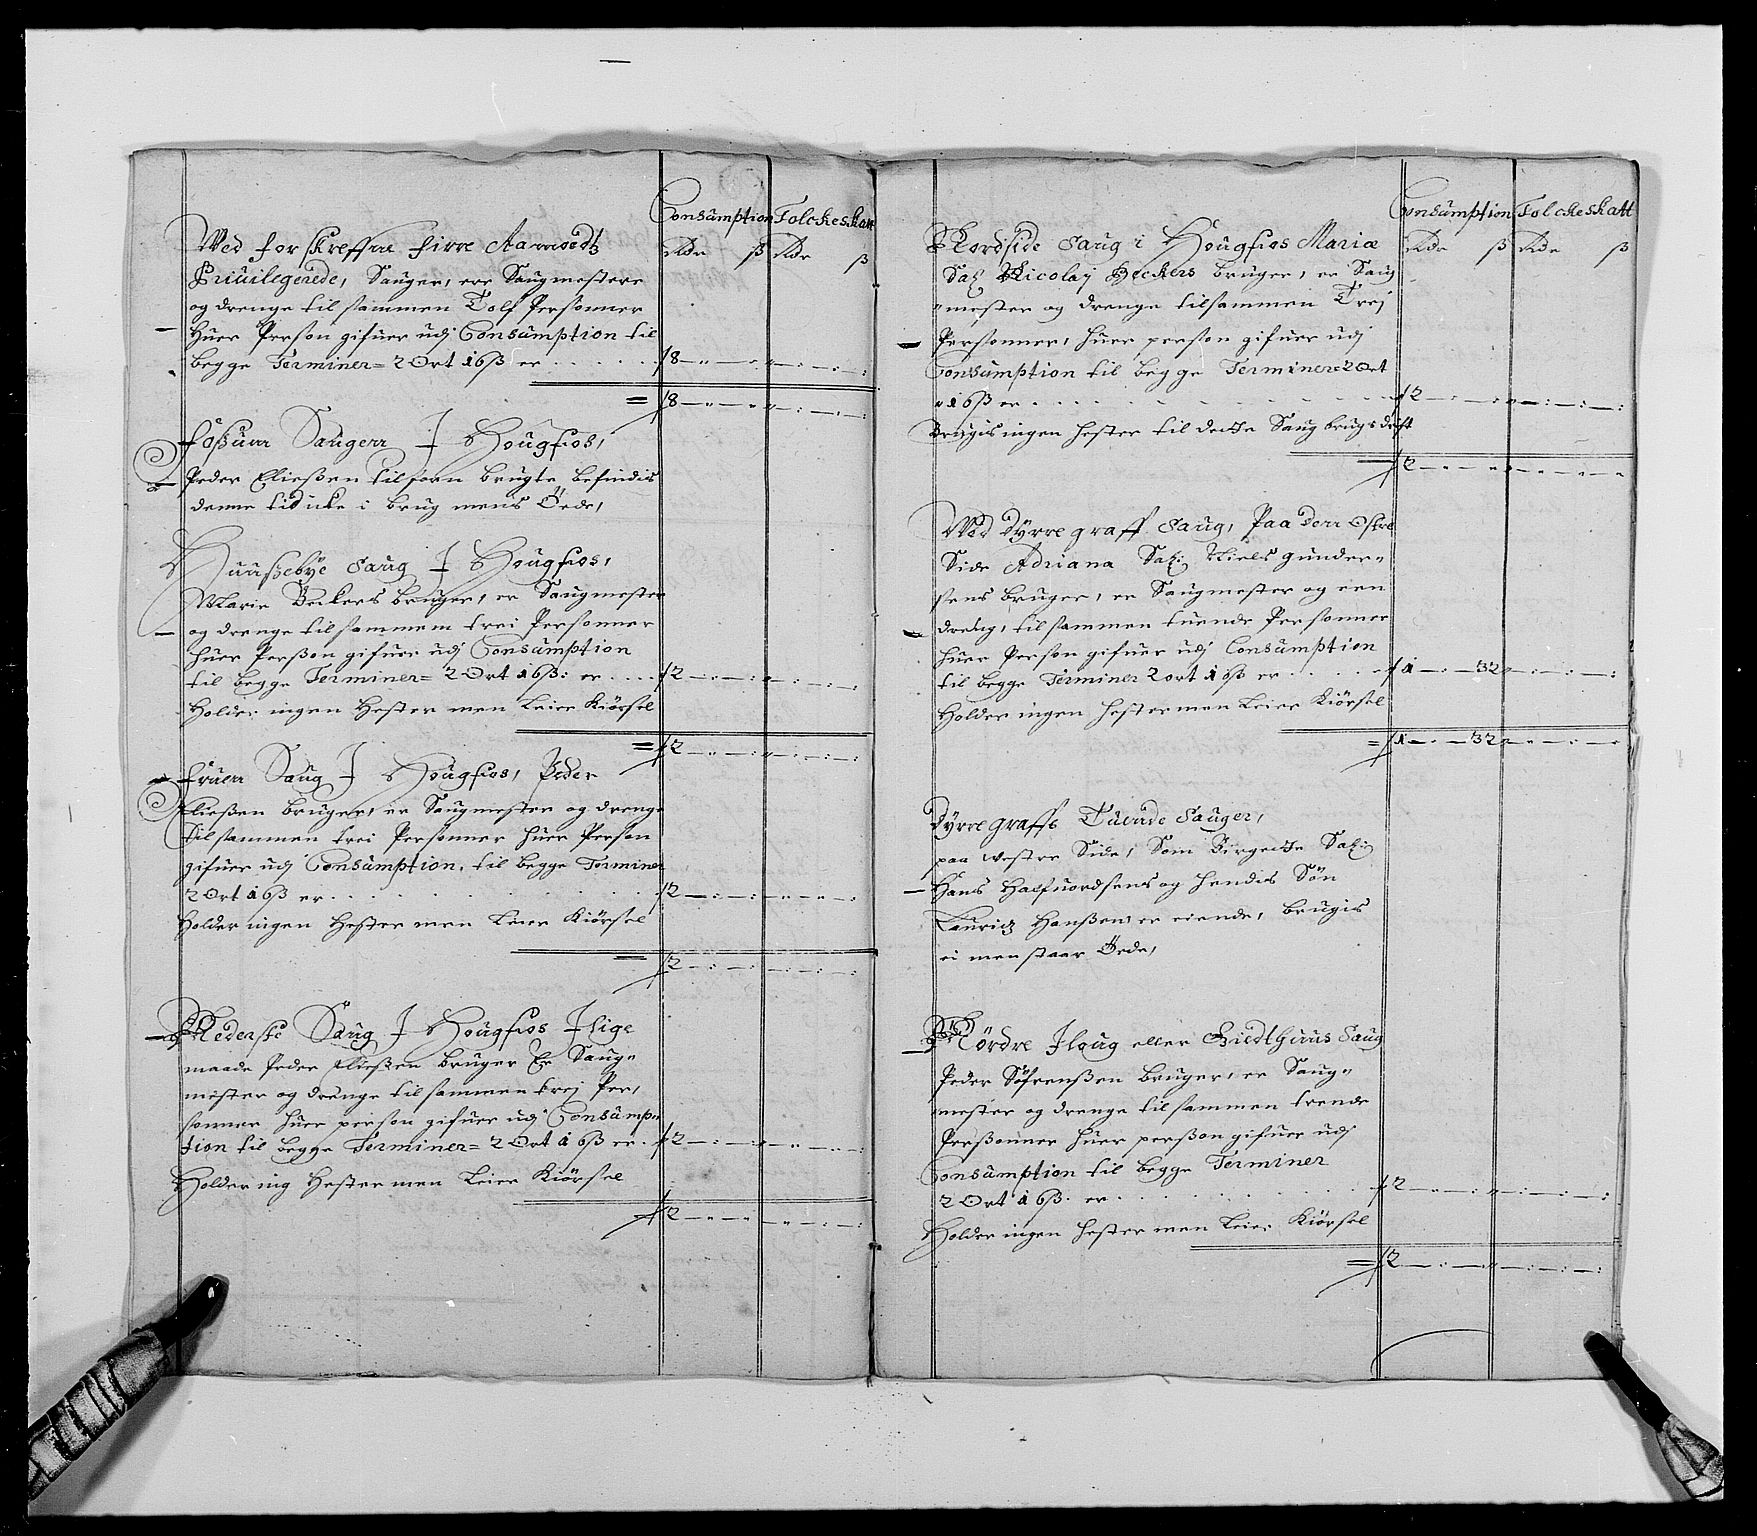 Consumption Folckeskatt
Rdr ß Rdr ß
Wed forskreffne firre Aamodtz
Priuilegerede, Sauger, ere Saugmestere
og drenge til sammen Tolf Personner
Huer Person gifuer udj Consumption til
begge Terminer= 2 Ort 16ß er . . . . 8
8
foßum Saugerr I Hougfios,
Peder Eliesßen tilforn brugte befindis
denne tid icke i brug mens Öde,
Huusebye Saug I Hougfios,
Marie Beckers bruger, er Saugmester
og drenge til sammen trei Personner
huer Perßon gifuer udj Consumption
til begge Terminer= 2 Ort 16ß: er . . . . 2
Holder ingen Hester men Leier Kiörsel
2
fruen Saug I Hougfios, Peder
Eliesßen bruger, er Saugmester og drenge
til sammen trei Personner huer Person
gifuer udj Consumption, til begge Terminer
2 Ort 16ß er . . . . 2
Holder ingen Hester men Leier Kiörsel
2
Nederste Saug I Hougfios I lige
maade Peder Eliesßen bruger Er Saug=
mester og drenge til sammen trej Per,
sonner huer person gifuer udj Consump=
tion til begge Terminer= 2 Ort 16ß er . 2
Holder ing Hester men Leier Kiörsel
2
Consumption Folckeskatt
Rdr ß Rdr ß
Nordside Saug i Hougfios Mariæ
Sal Nicolaj Beckers bruger, er Saug
mester og drenge tilsammen Trej
Personner, huer person gifuer udj
Consumption til begge Terminer= 2 Ort
16ß er . . . . 2
Brugis ingen hester til dette Saug brugs drift
2
Wed Dyrregraff Saug, Paa Denn Ostre
Side Adriana Sal: Niels gunder=
sens bruger, er Saugmester og een
dreng, til sammen tuende Personner
huer Person gifuer udj Consumption
til begge Terminer 2 ort 16ß er . . . . 1 32
Holder ingen hester men Leier Kiörsel
1 32
Dyrregraffs Tuende Sauger,
paa westre Side, Som Birgette Sal:
Hans Halfuordsens og hendis Sön
Lauritz Hanßen er eiende, brugis
ei men staar Öede,
Nördre Ilaug eller Giedthuus Saug
Peder Söfrenßen bruger, er Saug=
mester og drenge til sammen trende
Perßonner huer perßon gifuer udj
Consumption til begge Terminer
2 Ort 16ß: er . . . . 2
Holder ingen hester men Leier Kiörsel
2